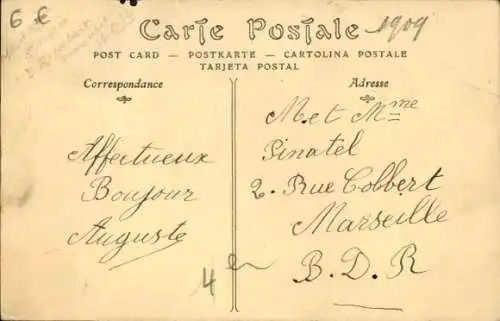 6 €
Carte Postale
1909
POST CARD — POSTKARTE — CARTOLINA POSTALE
TARJETA POSTAL
Correspondance
Affectueux
Boujour
Auguste
4
Adresse
M et Mme
Pinatel
2. Rue Colbert
Marseille
B. D. R